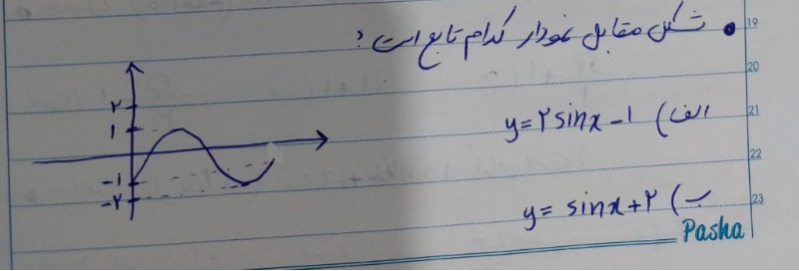 • شکل مقابل نمودار کدام تابع است؟
الف) y=۲sinx-۱
ب) y= sinx+۲
۲
۱
-۱
-۲
19
20
21
22
23
Pasha